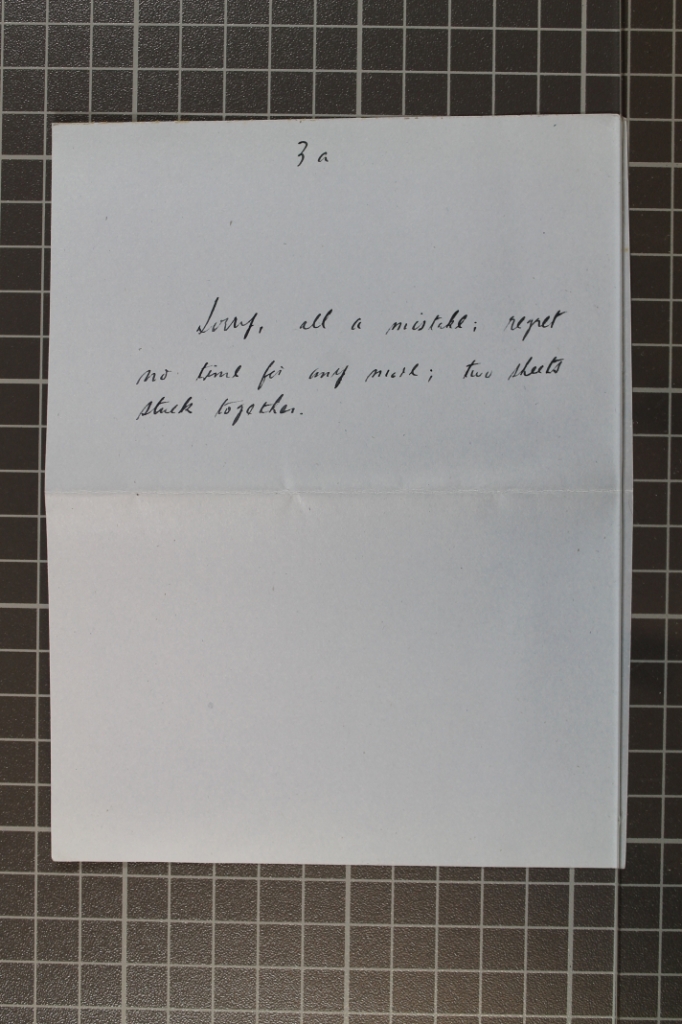 3 a
Sorry, all a mistake; regret
no time for any more; two sheets
stuck together.